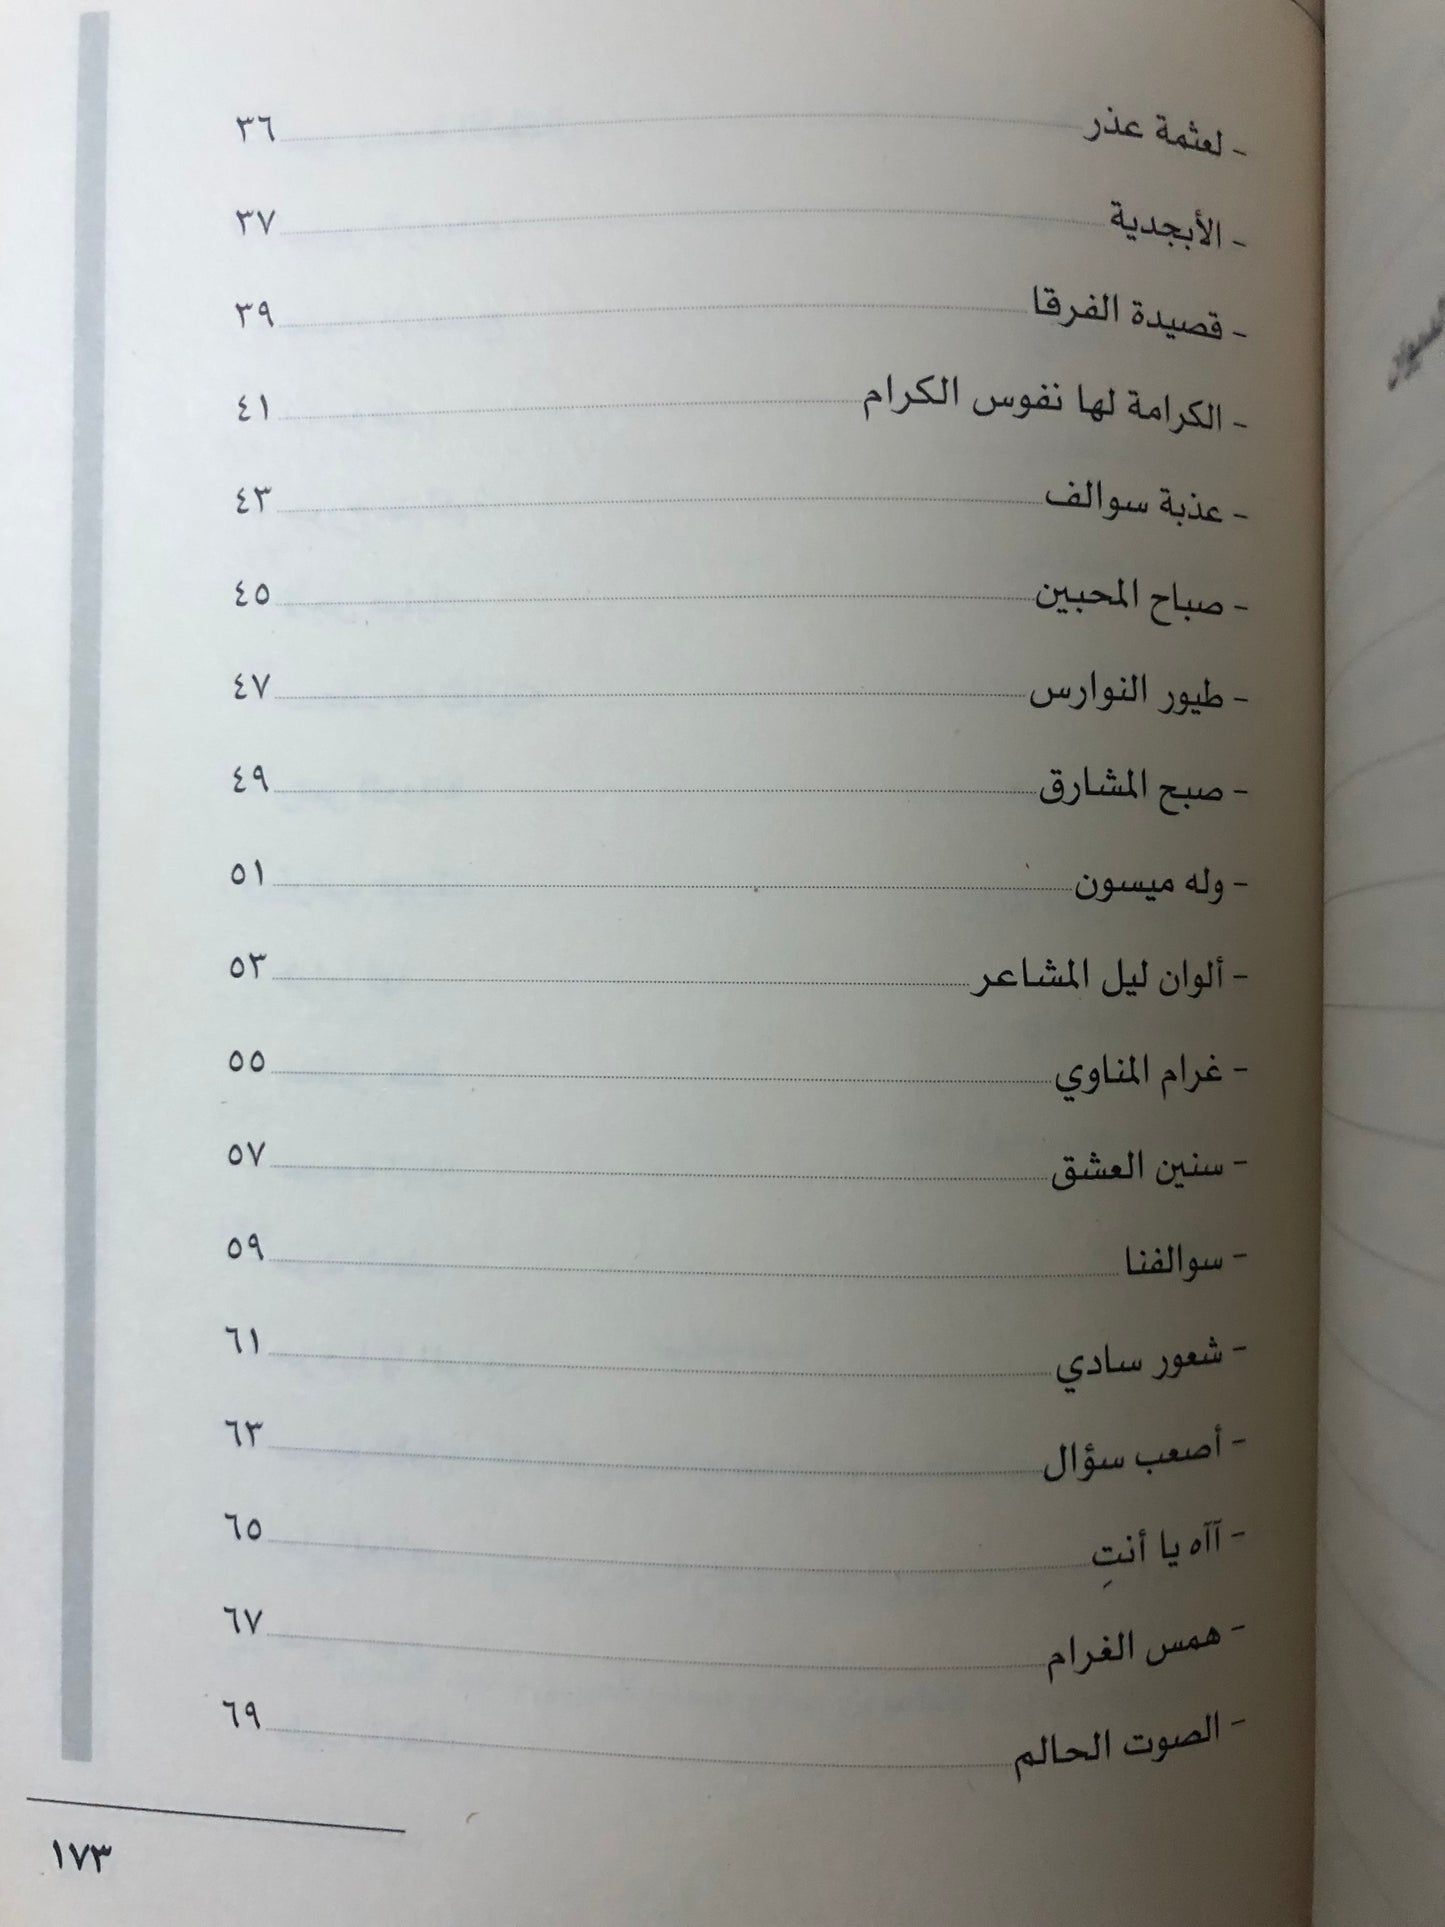 - لعثمة عذر ٣٦
- الأبجدية ٣٧
- قصيدة الفرقا ٣٩
- الكرامة لها نفوس الكرام ٤١
- عذبة سوالف ٤٣
- صباح المحبين ٤٥
- طيور النوارس ٤٧
- صبح المشارق ٤٩
- وله ميسون ٥١
- ألوان ليل المشاعر ٥٣
- غرام المناوي ٥٥
- سنين العشق ٥٧
- سوالفنا ٥٩
- شعور سادي ٦١
- أصعب سؤال ٦٣
- آآه يا أنتِ ٦٥
- همس الغرام ٦٧
- الصوت الحالم ٦٩
١٧٣